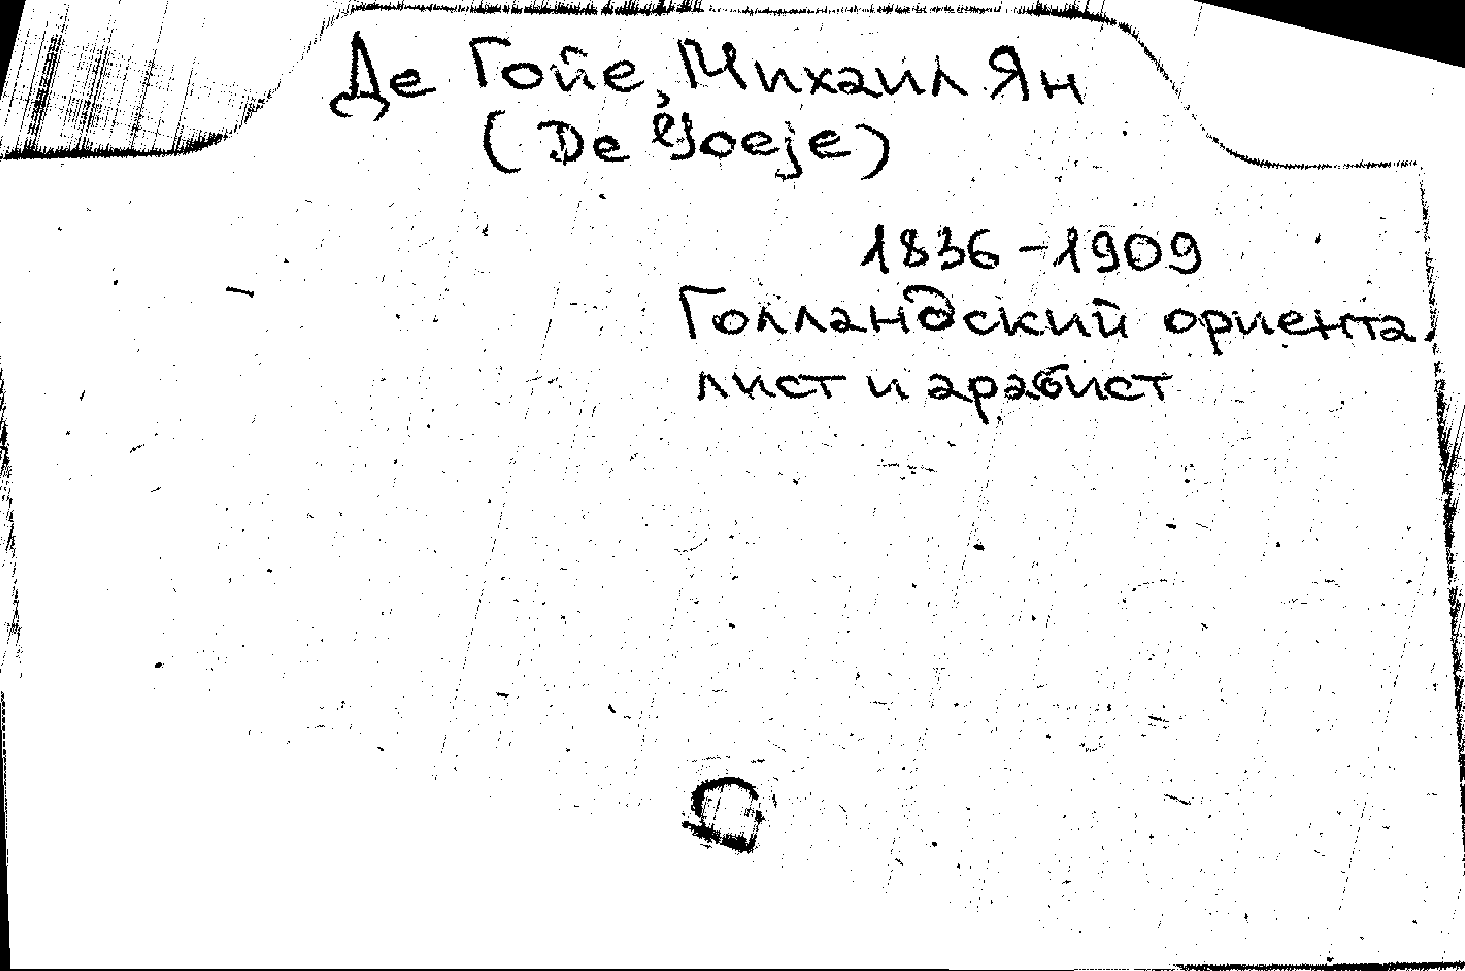 Де Гойе, Михаил Ян
(De Goeje)
1836-1909
Голландский ориента-
лист и арабист